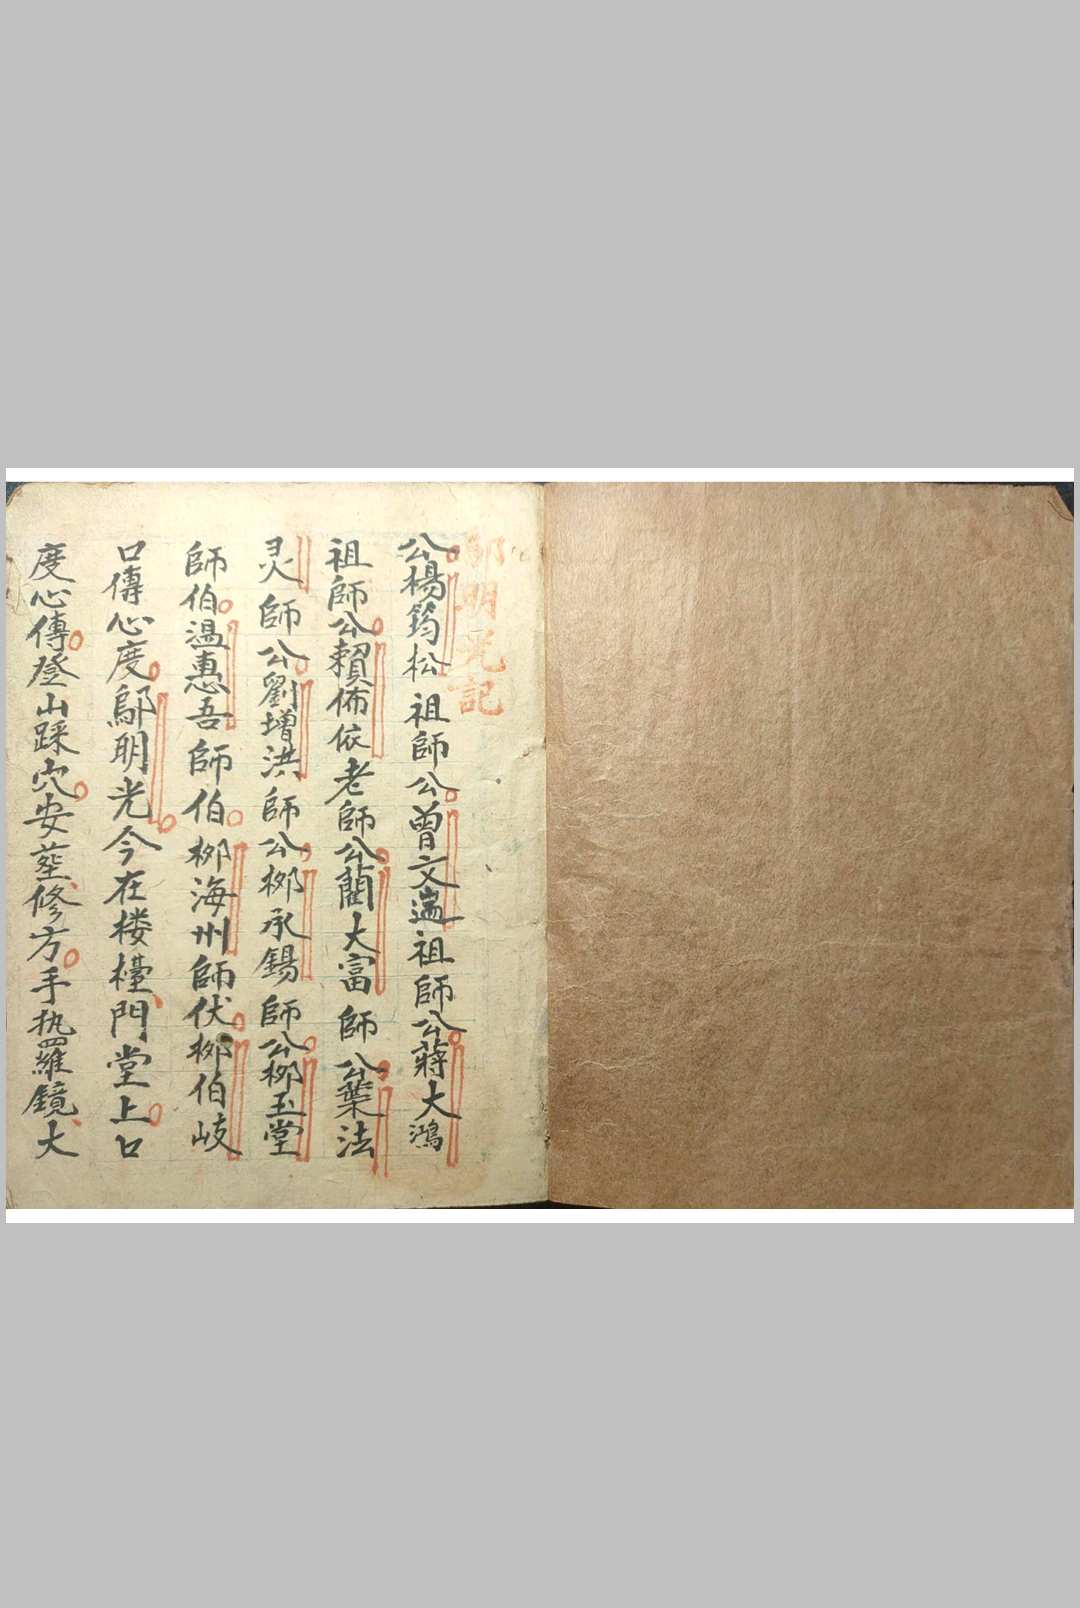 鄔明光記
公楊筠松祖師公曾文遄祖師公蔣大鴻
祖師公賴佈依老師公藺大富師公葉法
灵師公劉增洪師公柳承錫師公柳玉堂
師伯温惠吾師伯柳海州師伏柳伯岐
口傳心度鄔明光今在楼檯門堂上口
度心傳登山踩穴安葬修方手执羅鏡大